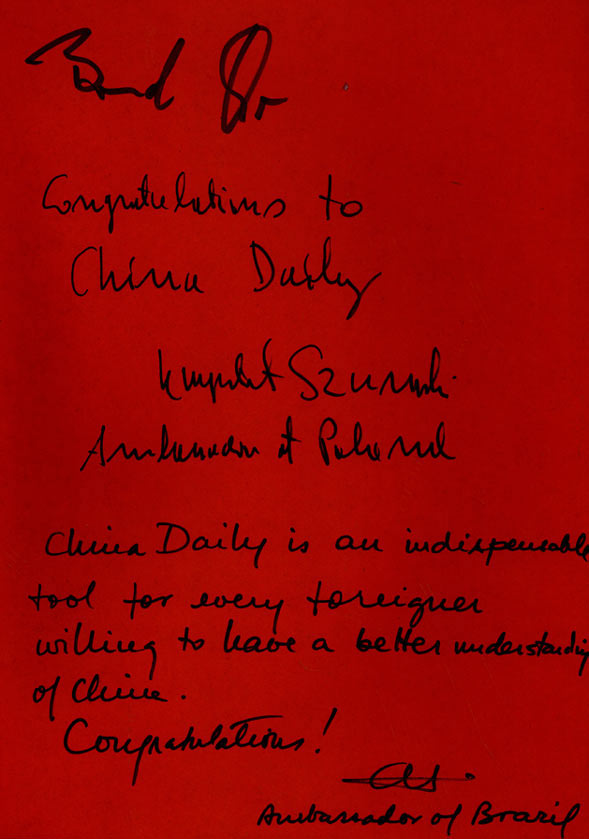 Congratulations to
China Daily
Krzysztof Szumski
Ambassador of Poland
China Daily is an indispensable
tool for every foreigner
willing to have a better understanding
of China.
Congratulations!
Ambassador of Brazil